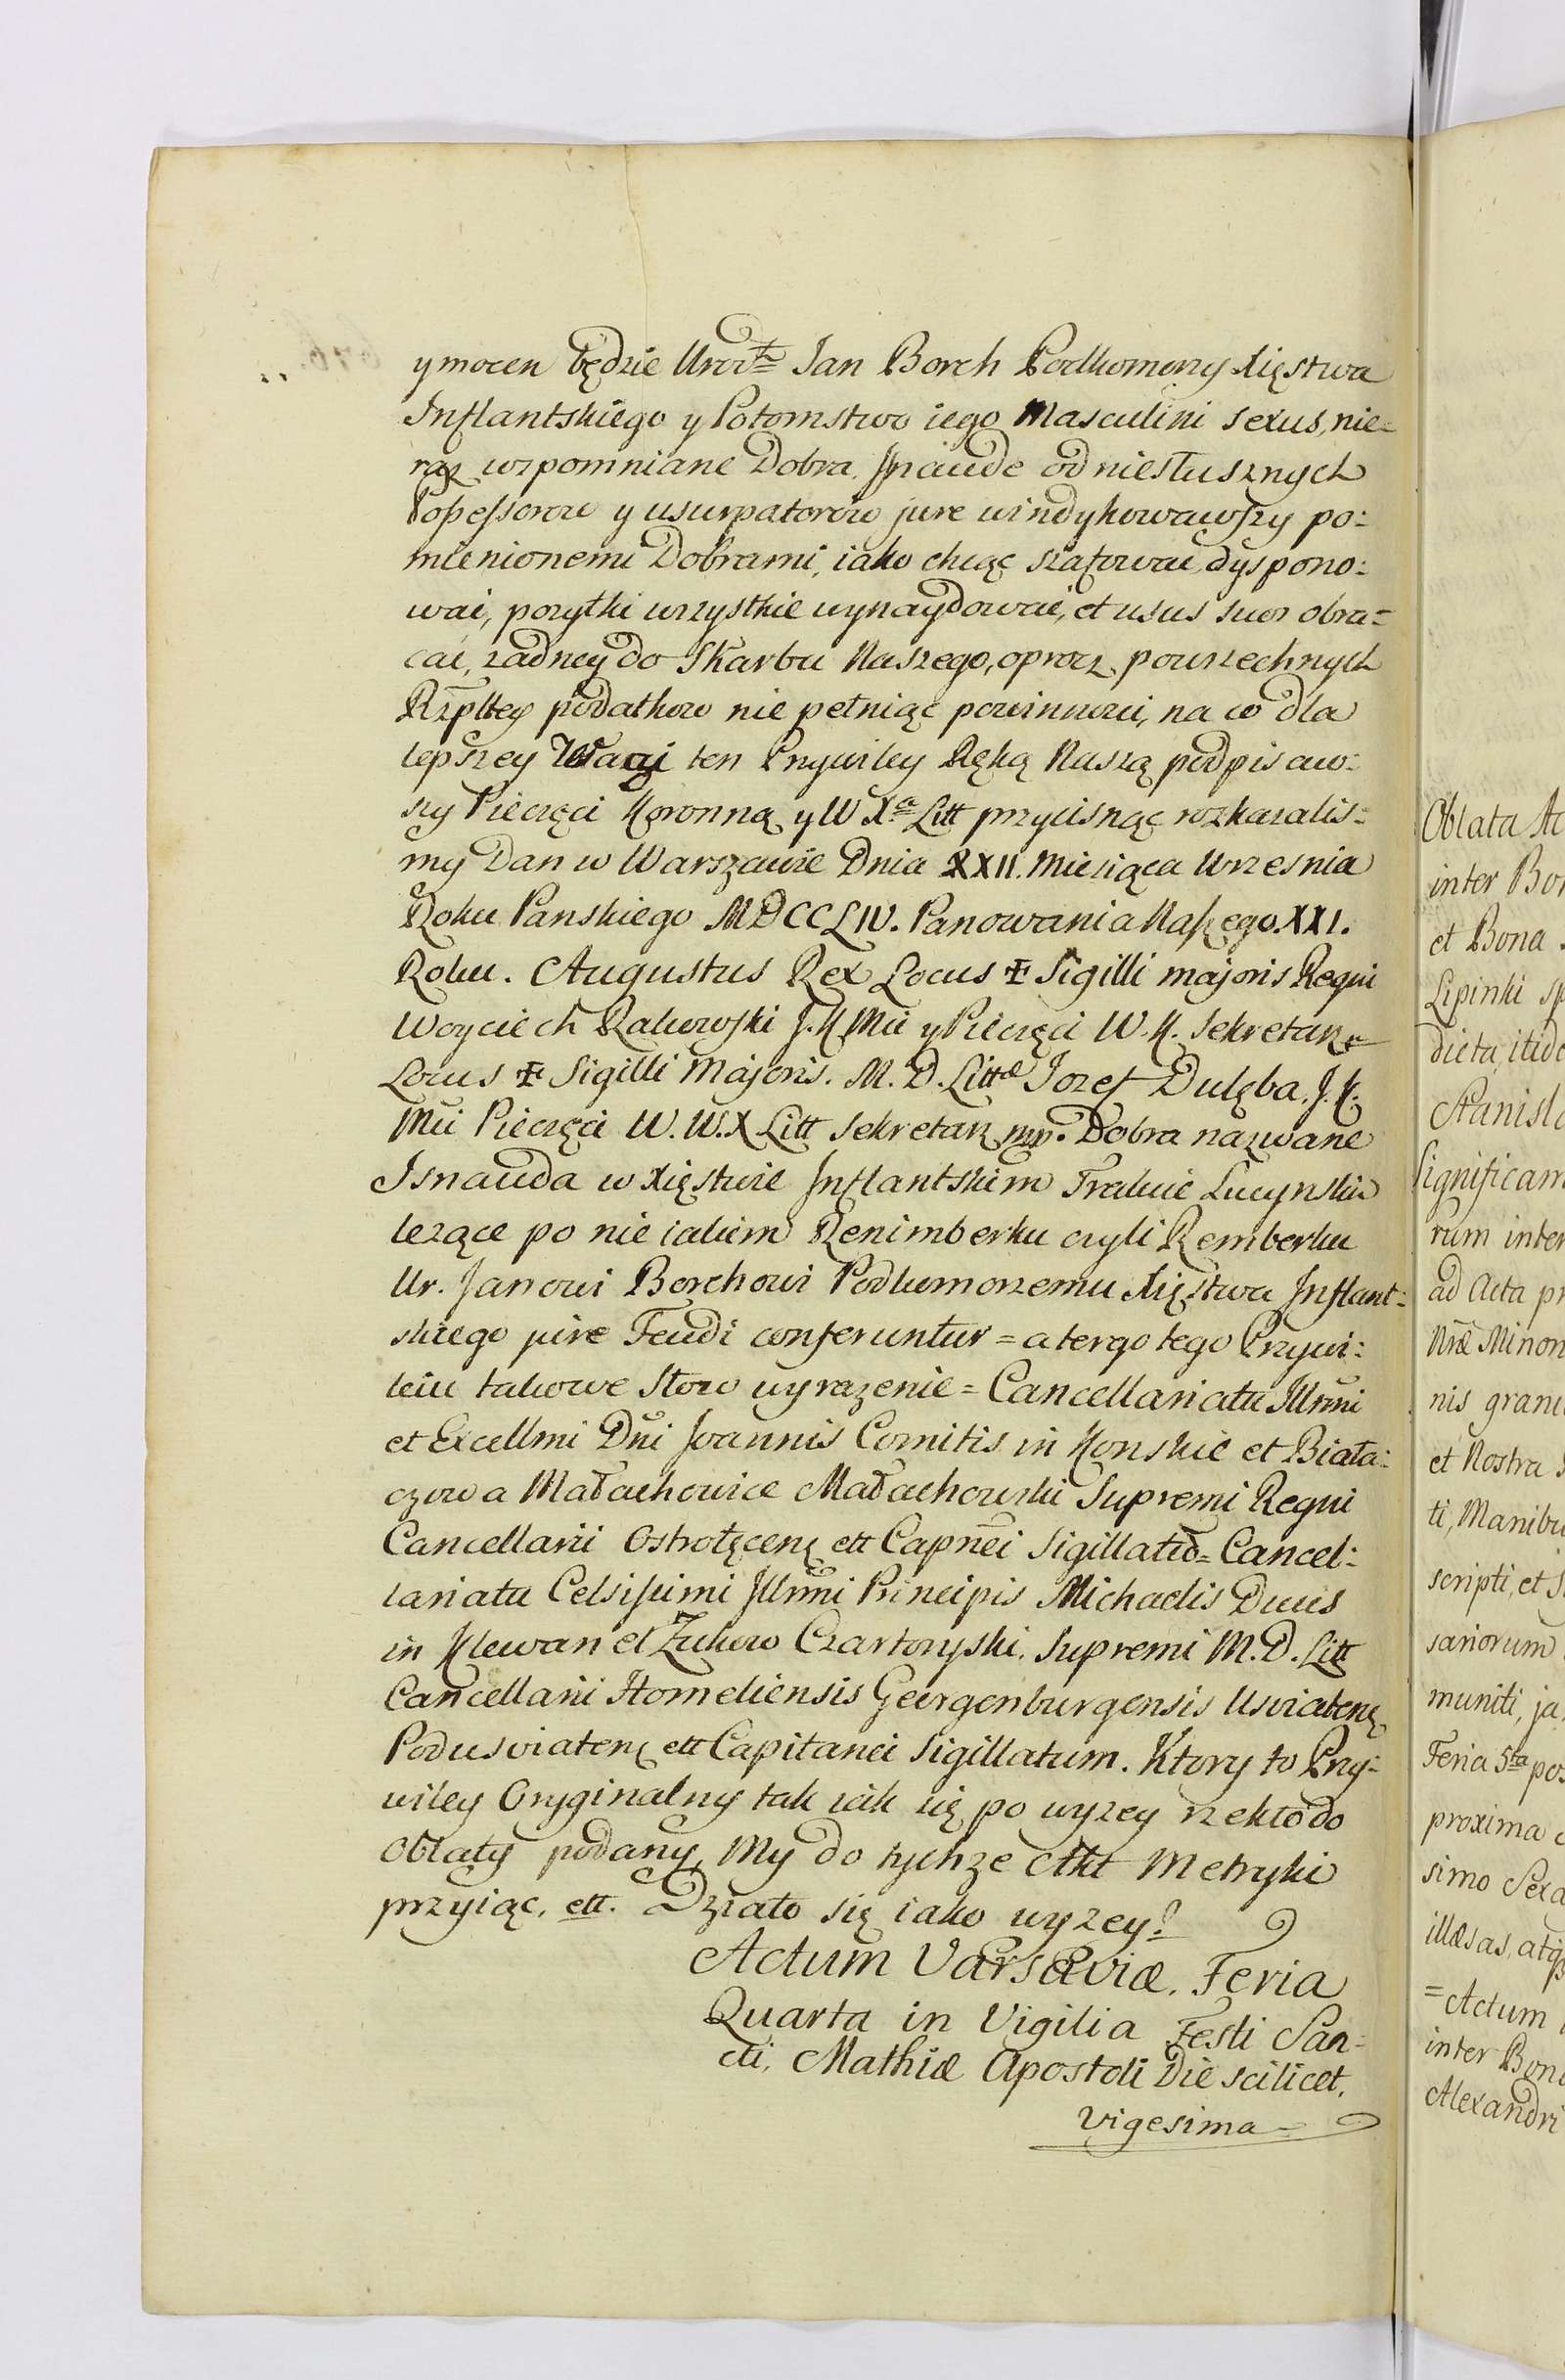 y mocen będzie Urodz Jan Borch Podkomorzy Xięstwa
Inflantskiego y Potomstwo iego Masculini Sexus, nie-
raz wzpomniane Dobra Isnaude od niesłusznych
Possessorow y usurpatorow jure windykowawszy po=
mienionemi Dobrami, iako chcąc szafować dyspono=
wać, pozytki wszystkie wynaydować, et usus suos obra=
cać, zadney do Skarbu Naszego, oprocz powszechnych
Rzpltey podatkow nie pełniąc powinności, na co dla
lepszey Wagi ten Przywiley Ręką Naszą podpisaw=
szy Pieczęci Koronną y W Xa Litt przycisnąć rozkazalis=
my Dan w Warszawie Dnia XXII. Miesiąca Wrzesnia
Roku Panskiego MDCCLIV. Panowania Naszego. XXI.
Roku. Augustus Rex Locus Sigilli majoris Regni
Woyciech Rakowski J. K Mci y Pieczęci W. K. Sekretarz
Locus Sigilli Majoris. M. D. Littæ Jozef Dulęba. J. K.
Mci Pieczęci W. W. X Litt Sekretarz mp. Dobra nazwane
Isnauda w Xięstwie Inflantskim Trakcie Lucynskim
lezące po nie iakim Renimberku czyli Remberku
Ur. Janowi Borchowi Podkomorzemu Xięstwa Inflant=
skiego jure Feudi conferuntur = a tergo tego Przywi=
leiu takowe Słow wyrazenie = Cancellariatu Illmi
et Excellmi Dni Joannis Comitis in Konskie et Biała=
czowa Małachowice Małachowski Supremi Regni
Cancellarii Ostrołęcen ett Capnei Sigillatio = Cancel=
lariatu Celsissimi Illmi Principis Michaelis Ducis
in Klewan et Zukow Czartoryski. Supremi M. D. Litt
Cancellarii Homeliensis Georgenburgensis Usviaten
Podusviaten ett Capitanei Sigillatum. Ktory to Przy=
wiley Oryginalny tak iak się po wyzey rzekło do
Oblaty podany, My do tychze Akt Metryki
przyiąć, ett. Działo się iako wyzey.
Actum Varsaviæ. Feria
Quarta in Vigilia Festi San=
cti, Mathiæ Apostoli Die scilicet.
Vigesima
Oblata
inter
et Bona
Lipinki
dicta,
Significam
rum inter
ad Acta
Nræ
nis
et Nostra
ti,
scripti, et
sariorum
muniti,
Feria 5ta
proxima
simo
illæsas,
=Actum
inter
Alexandri